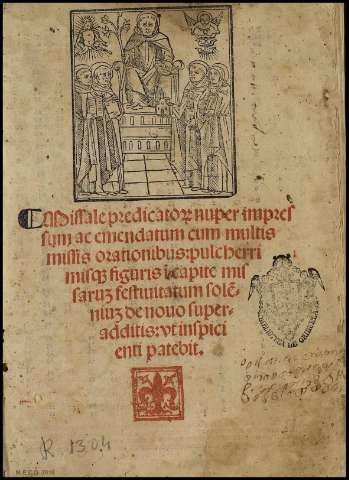 Missale predicatoꝝ nuper impres
sum ac emendatum cum multis
missis orationibus: pulcherri
misqꝫ figuris i capite mis
sarum festiuitatum solē-
nium de nouo super-
additis: vt inspici
enti patebit.
R 1304